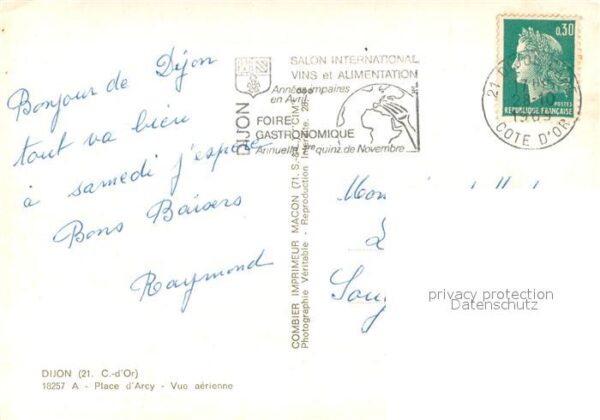 Bonjour de Dijon
tout va bien
à samedi j'espère
Bons Baisers
Raymond
DIJON (21. C.-d'Or)
18257 A - Place d'Arcy - Vue aérienne
COMBIER IMPRIMEUR MACON (71. S.-
Photographie Véritable - Reproduction
DIJON
SALON INTERNATIONAL
VINS et ALIMENTATION
Années impaires
en Avril
FOIRE
GASTRONOMIQUE
Annuelle 1ère quinz. de Novembre
0,30
POSTES
REPUBLIQUE FRANÇAISE
21 DIJON
COTE D'OR
Mon
privacy protection
Datenschutz